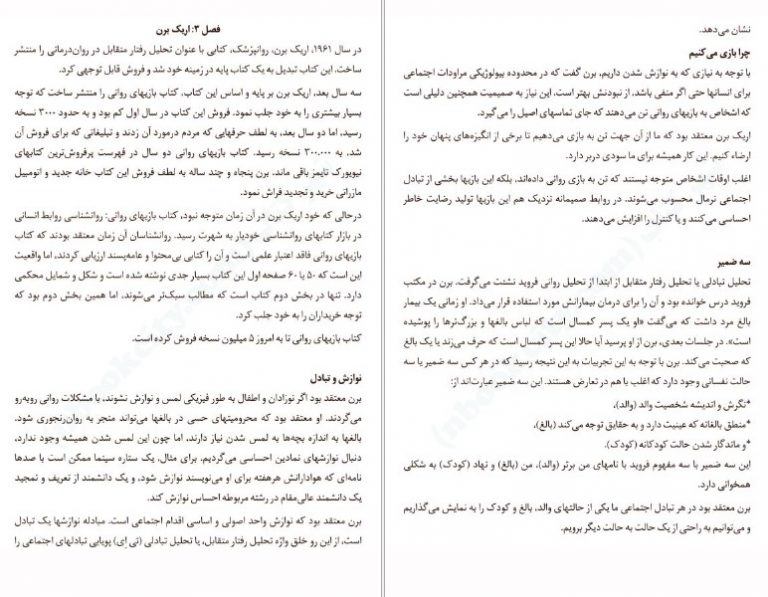 فصل ۳: اریک برن
در سال ۱۹۶۱، اریک برن، روانپزشک، کتابی با عنوان تحلیل رفتار متقابل در روان‌درمانی را منتشر
ساخت. این کتاب تبدیل به یک کتاب پایه در زمینه خود شد و فروش قابل توجهی کرد.
سه سال بعد، اریک برن بر پایه و اساس این کتاب، کتاب بازیهای روانی را منتشر ساخت که توجه
بسیار بیشتری را به خود جلب نمود. فروش این کتاب در سال اول کم بود و به حدود ۳۰۰۰ نسخه
رسید، اما دو سال بعد، به لطف حرفهایی که مردم درمورد آن زدند و تبلیغاتی که برای فروش آن
شد، به ۳۰۰.۰۰۰ نسخه رسید. کتاب بازیهای روانی دو سال در فهرست پرفروش‌ترین کتابهای
نیویورک تایمز باقی ماند. برن پنجاه و چند ساله به لطف فروش این کتاب خانه جدید و اتومبیل
مازراتی خرید و تجدید فراش نمود.
درحالی که خود اریک برن در آن زمان متوجه نبود، کتاب بازیهای روانی: روانشناسی روابط انسانی
در بازار کتابهای روانشناسی خودیار به شهرت رسید. روانشناسان آن زمان معتقد بودند که کتاب
بازیهای روانی فاقد اعتبار علمی است و آن را کتابی بی‌محتوا و عامه‌پسند ارزیابی کردند، اما واقعیت
این است که ۵۰ یا ۶۰ صفحه اول این کتاب بسیار جدی نوشته شده است و شکل و شمایل محکمی
دارد. تنها در بخش دوم کتاب است که مطالب سبک‌تر می‌شوند، اما همین بخش دوم بود که
توجه خریداران را به خود جلب کرد.
کتاب بازیهای روانی تا به امروز ۵ میلیون نسخه فروش کرده است.
نوازش و تبادل
برن معتقد بود اگر نوزادان و اطفال به طور فیزیکی لمس و نوازش نشوند، با مشکلات روانی روبه‌رو
می‌گردند. او معتقد بود که محرومیتهای حسی در بالغها می‌تواند منجر به روان‌رنجوری شود.
بالغها به اندازه بچه‌ها به لمس شدن نیاز دارند، اما چون این لمس شدن همیشه وجود ندارد،
دنبال نوازشهای نمادین احساسی می‌گردیم. برای مثال، یک ستاره سینما ممکن است با صدها
نامه‌ای که هوادارانش هرهفته برای او می‌نویسند نوازش شود، و یک دانشمند از تعریف و تمجید
یک دانشمند عالی‌مقام در رشته مربوطه احساس نوازش کند.
برن معتقد بود که نوازش واحد اصولی و اساسی اقدام اجتماعی است. مبادله نوازشها یک تبادل
است، از این رو خلق واژه تحلیل رفتار متقابل، یا تحلیل تبادلی (تی اِی) پویایی تبادلهای اجتماعی را
نشان می‌دهد.
چرا بازی می‌کنیم
با توجه به نیازی که به نوازش شدن داریم، برن گفت که در محدوده بیولوژیکی مراودات اجتماعی
برای انسانها حتی اگر منفی باشد، از نبودنش بهتر است، این نیاز به صمیمیت همچنین دلیلی است
که اشخاص به بازیهای روانی تن می‌دهند که جای تماسهای اصیل را می‌گیرد.
اریک برن معتقد بود که ما از آن جهت تن به بازی می‌دهیم تا برخی از انگیزه‌های پنهان خود را
ارضاء کنیم. این کار همیشه برای ما سودی دربر دارد.
اغلب اوقات اشخاص متوجه نیستند که تن به بازی روانی داده‌اند، بلکه این بازیها بخشی از تبادل
اجتماعی نرمال محسوب می‌شوند. در روابط صمیمانه نزدیک هم این بازیها تولید رضایت خاطر
احساسی می‌کنند و یا کنترل را افزایش می‌دهند.
سه ضمیر
تحلیل تبادلی یا تحلیل رفتار متقابل از ابتدا از تحلیل روانی فروید نشئت می‌گرفت. برن در مکتب
فروید درس خوانده بود و آن را برای درمان بیمارانش مورد استفاده قرار می‌داد. او زمانی یک بیمار
بالغ مرد داشت که می‌گفت «او یک پسر کمسال است که لباس بالغها و بزرگ‌ترها را پوشیده
است». در جلسات بعدی، برن از او پرسید آیا حالا این پسر کمسال است که حرف می‌زند یا یک بالغ
که صحبت می‌کند. برن با توجه به این تجربیات به این نتیجه رسید که در هر کس سه ضمیر یا سه
حالت نفسانی وجود دارد که اغلب با هم در تعارض هستند. این سه ضمیر عبارت‌اند از:
*نگرش و اندیشه شخصیت والد (والد)،
*منطق بالغانه که عینیت دارد و به حقایق توجه می‌کند (بالغ)،
*و ماندگار شدن حالت کودکانه (کودک).
این سه ضمیر با سه مفهوم فروید با نامهای من برتر (والد)، من (بالغ) و نهاد (کودک) به شکلی
همخوانی دارد.
برن معتقد بود در هر تبادل اجتماعی ما یکی از حالتهای والد، بالغ و کودک را به نمایش می‌گذاریم
و می‌توانیم به راحتی از یک حالت به حالت دیگر برویم.